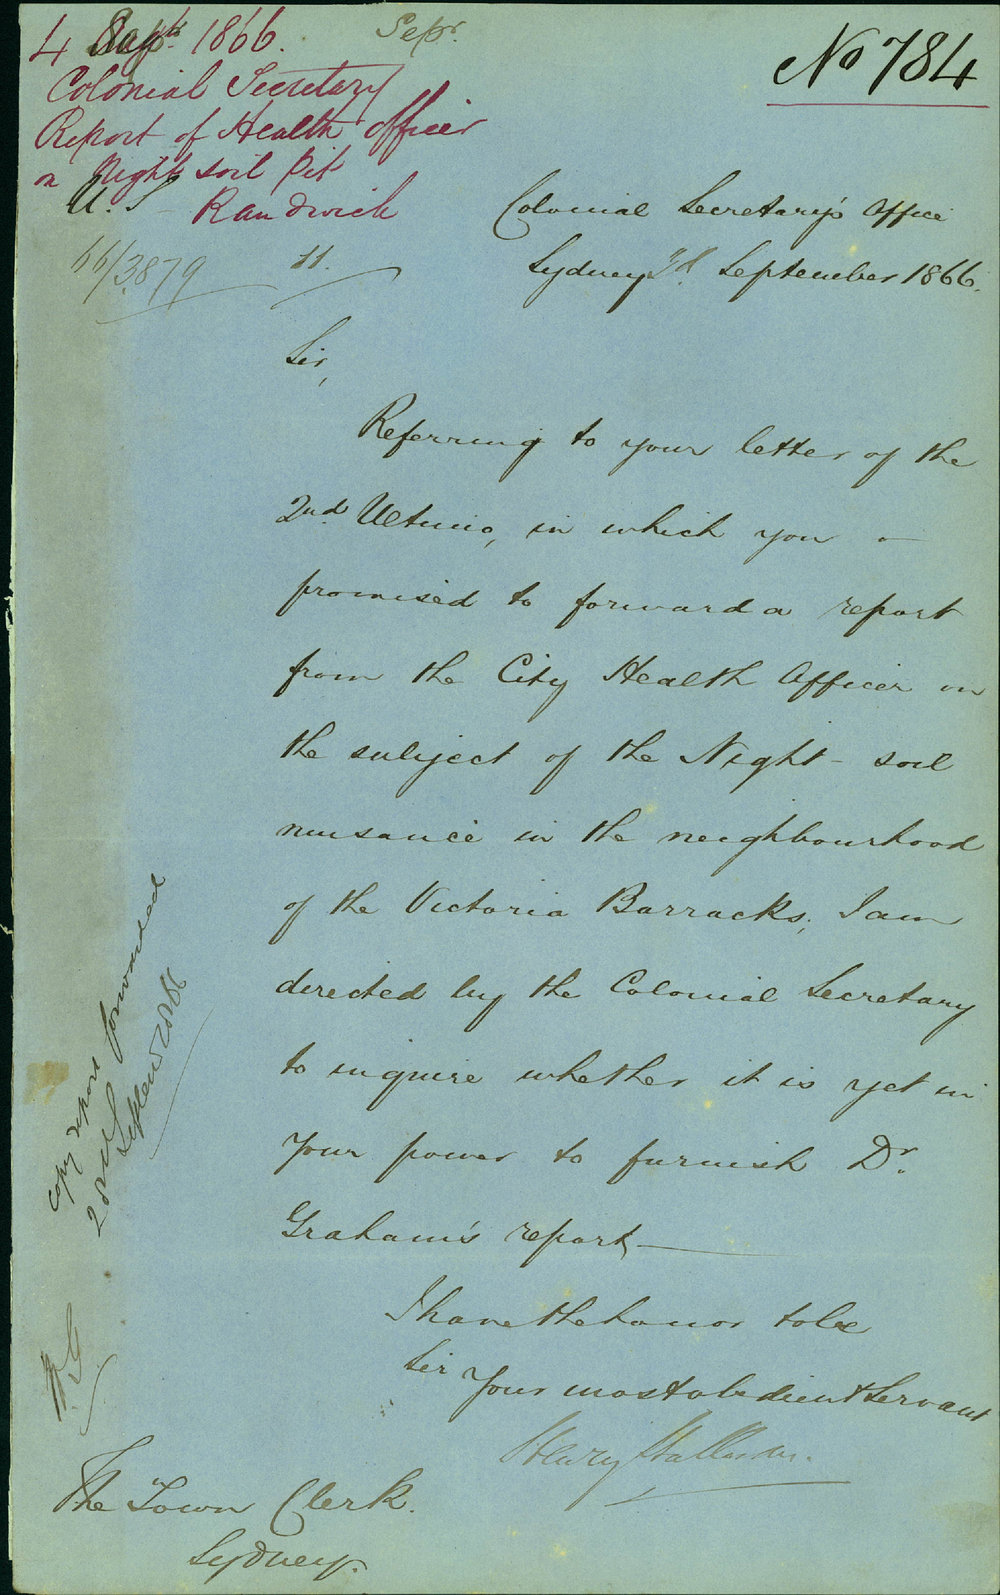 4 Sept. 1866.
Sepr.
No 784
Colonial Secretary
Report of Health Officer
on Night soil Pit
Randwich
U.S
66/3879
11.
Colonial Secretary's Office
Sydney 3d. September 1866.
Sir,
Referring to your letter of the
2nd. Ultimo, in which you
promised to forward a report
from the City Health Officer on
the subject of the Night-soil
nuisance in the neighbourhood
of the Victoria Barracks, I am
directed by the Colonial Secretary
to inquire whether it is yet in
your power to furnish Dr.
Graham's report—
I have the honor to be
Sir
Your most obedient Servant
Henry Halloran.
The Town Clerk.
Sydney.
copy report forwarded